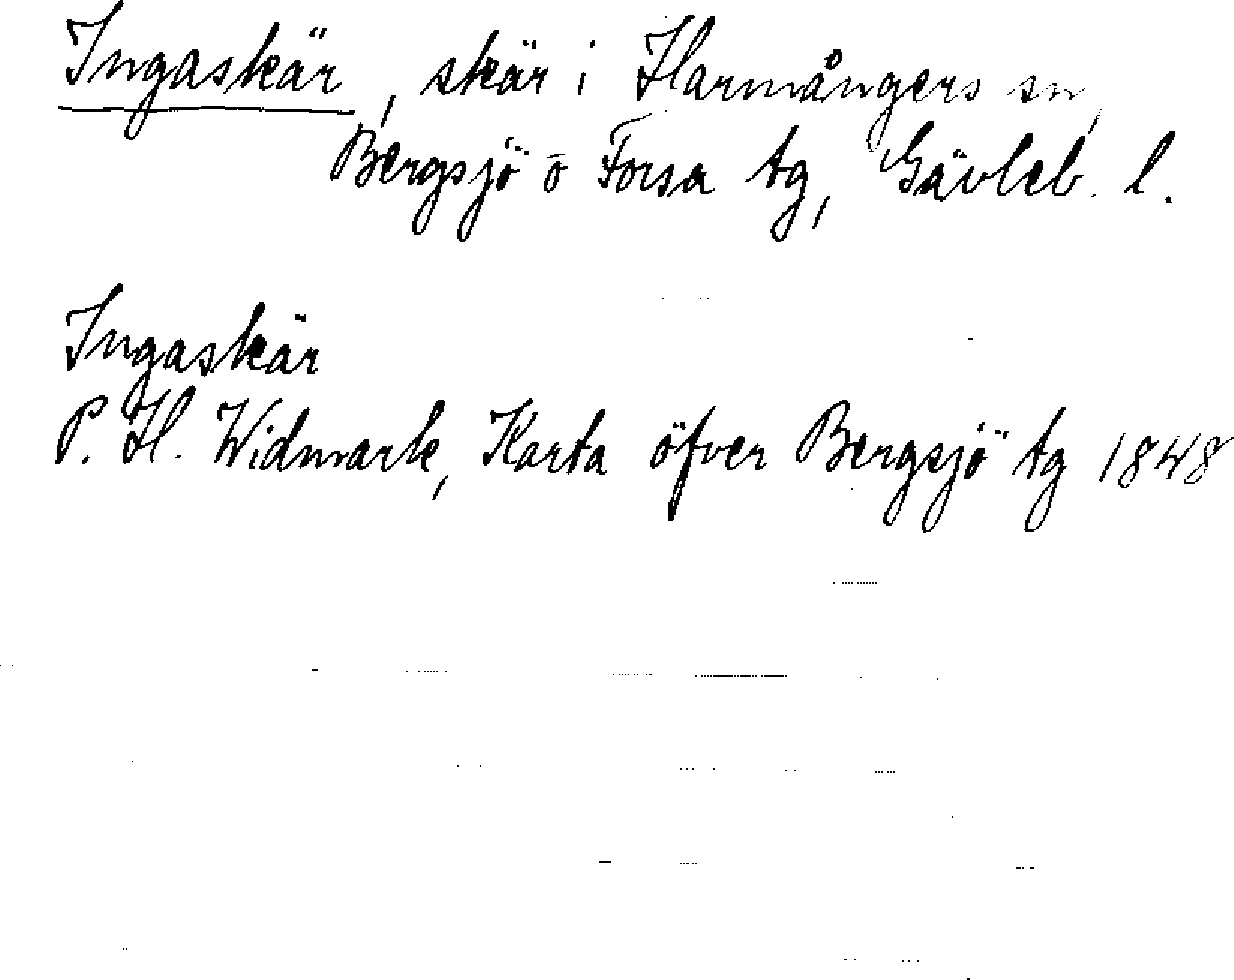 Ingaskär, skär i Harmångers sn,
Bergsjö o Forsa tg, Gävleb. l.
Ingaskär
P. H. Widmark, Karta öfver Bergsjö tg 1848